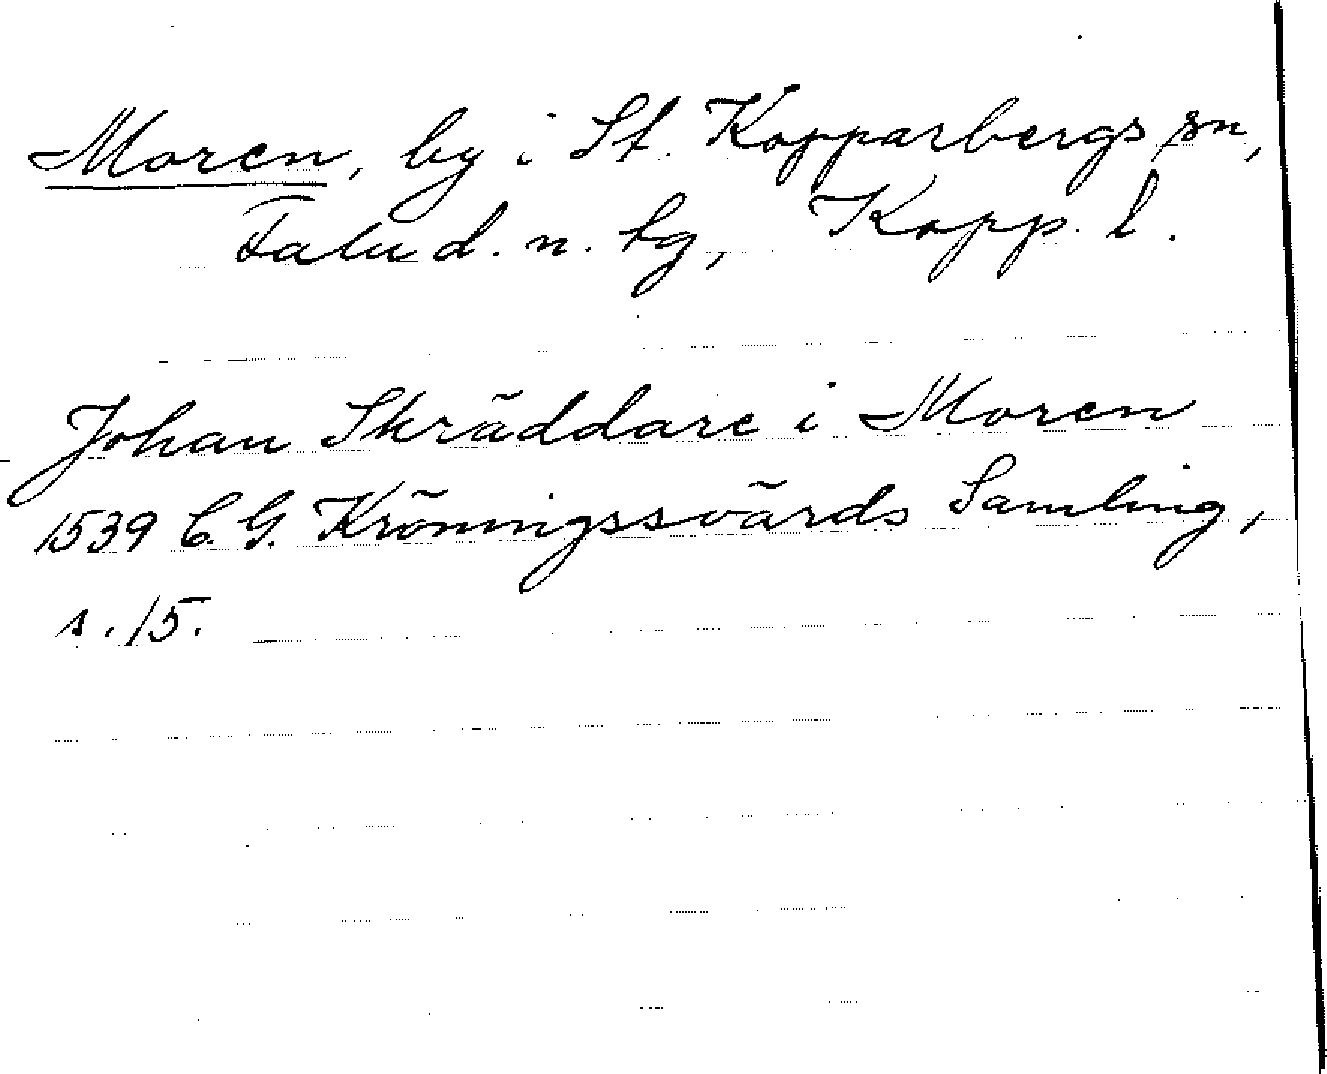 Moren, by i St. Kopparbergs sn,
Falu d. n. tg, Kopp. l.
Johan Skräddare i Moren
1539 C. G. Kröningssvärds Samling,
s. 15.